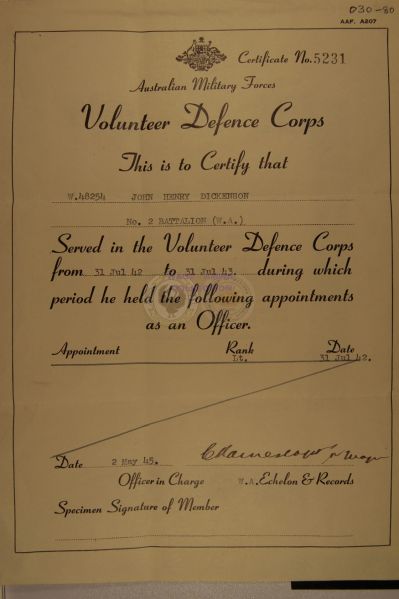 030-80
AAF. A207
Certificate No. 5231
Australian Military Forces
Volunteer Defence Corps
This is to Certify that
W.48254 JOHN HENRY DICKENSON
No. 2 BATTALION (W.A.)
Served in the Volunteer Defence Corps
from 31 Jul 42 to 31 Jul 43. during which
period he held the following appointments
as an Officer.
Appointment Rank Date
Lt. 31 Jul 42.
Date 2 May 45.
Officer in Charge W.A. Echelon & Records
Specimen Signature of Member